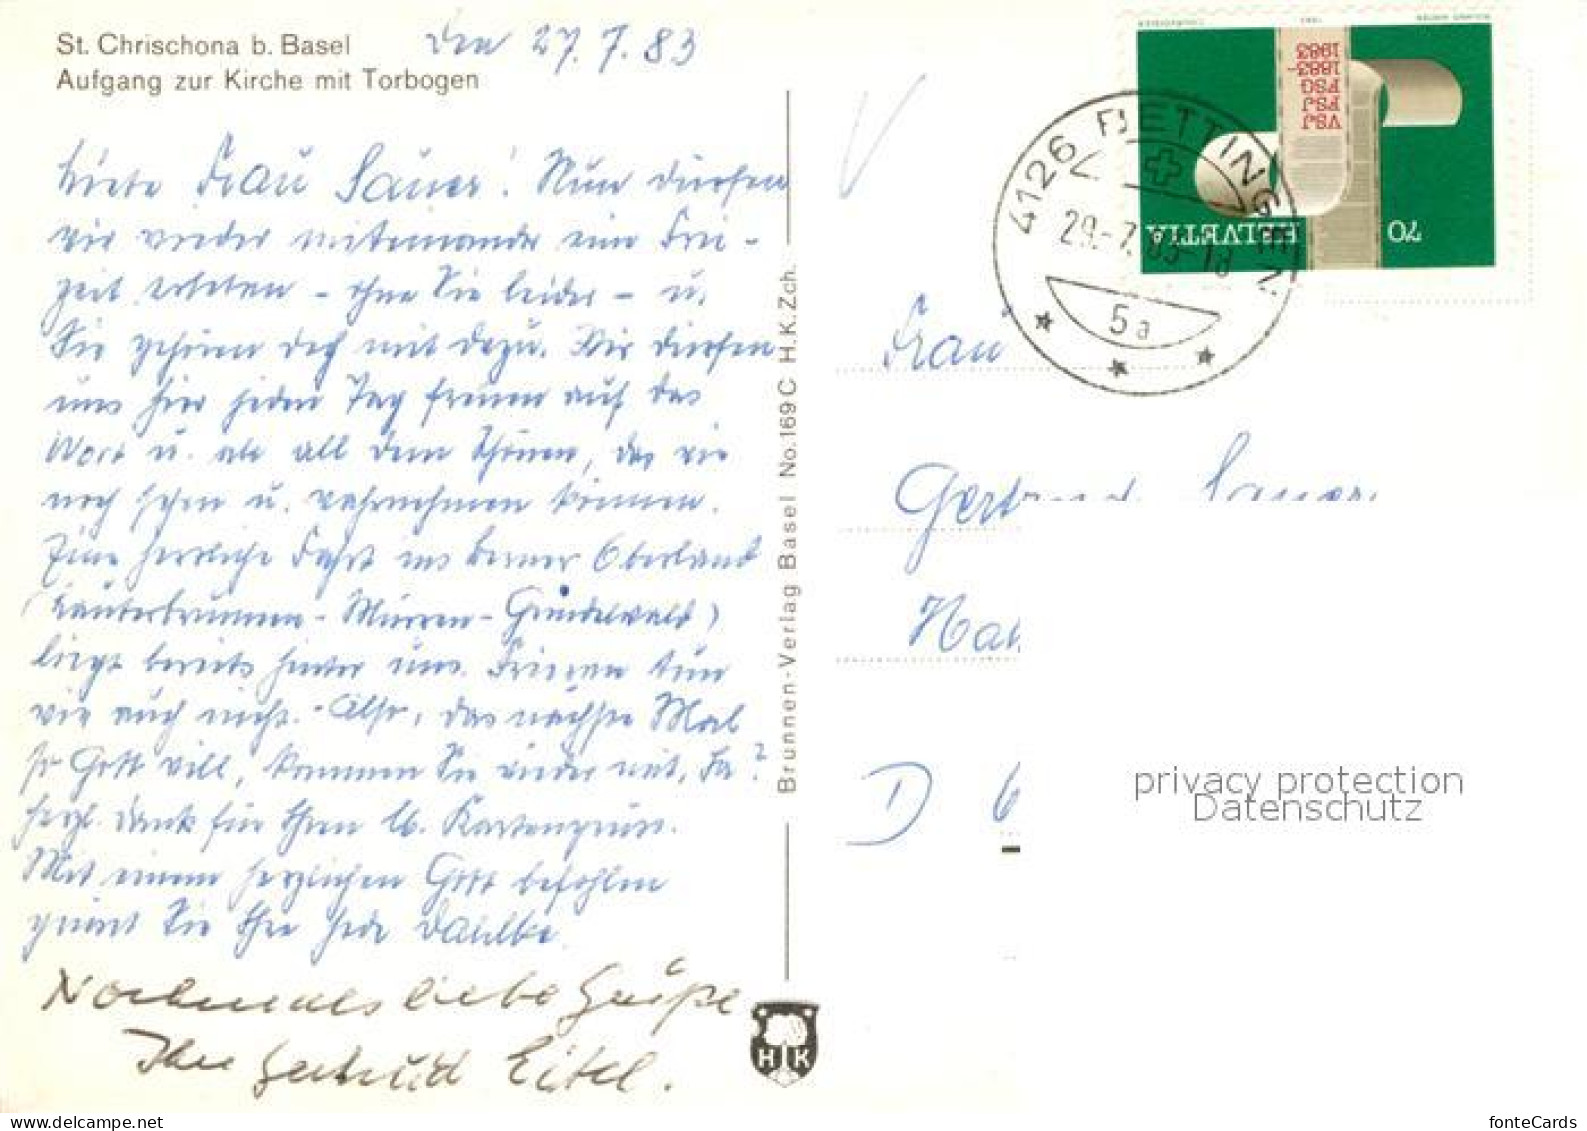 St. Chrischona b. Basel
Aufgang zur Kirche mit Torbogen
den 27.7.83
Liebe Frau Sauer! Nun dürfen
wir wieder miteinander eine Frei-
zeit erleben - ohne Sie leider - u.
Sie gehören doch mit dazu. Wir dürfen
uns hier jeden Tag freuen auf das
Wort u. an all dem Schönen, das wir
noch sehen u. wahrnehmen können.
Eine herrliche Fahrt ins Berner Oberland
(Lauterbrunnen - Mürren - Grindelwald)
liegt bereits hinter uns. Frieren tun
wir auch nicht. - Also, das nächste Mal
so Gott will, kommen Sie wieder mit, Ja?
Herzl. Dank für Ihren lb. Kartengruss.
Mit einem herzlichen Gott befohlen
grüsst Sie Ihre Dahlke
Nochmals liebe Grüße
Ihre Gertrud Eitel.
Brunnen-Verlag Basel No. 169 C H.K.Zch.
H K
HELVETIA
70
VSJ
FSJ
FSG
1883-
1983
4126 BETTINGEN
29.-7.83-18
5a
Frau
Gertrud Sauer
D 6
privacy protection
Datenschutz
fonteCards